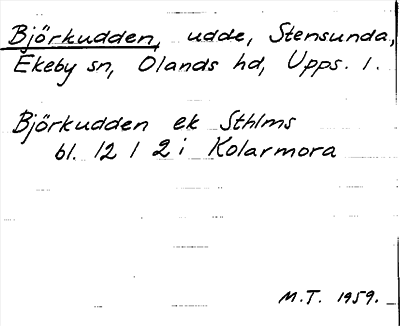 Björkudden, udde, Stensunda,
Ekeby sn, Olands hd, Upps. l.
Björkudden ek Sthlms
bl. 12 I 2 i Kolarmora
M.T. 1959.